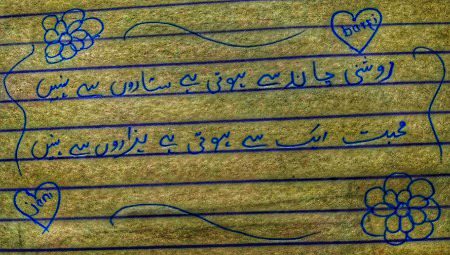 روشنی چاند سے ہوتی ہے ستاروں سے نہیں
محبت اک سے ہوتی ہے ہزاروں سے نہیں